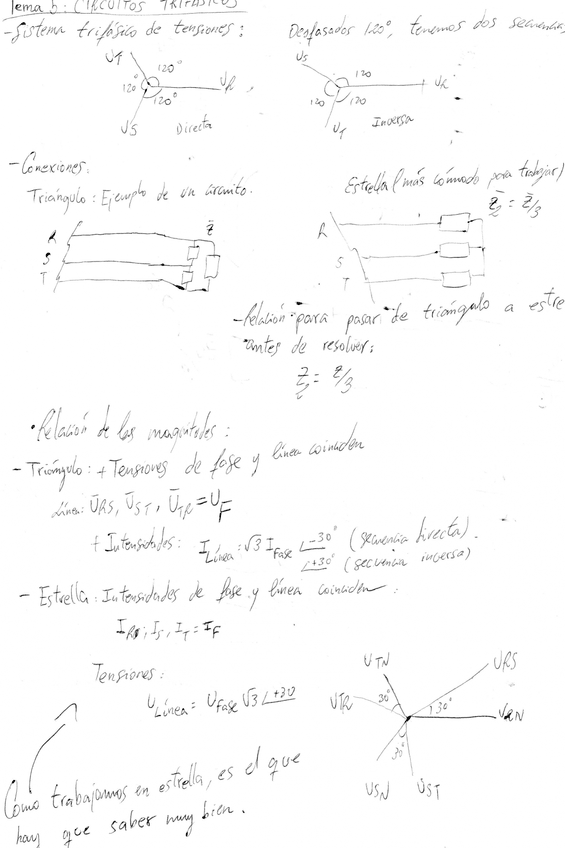 Tema 5: CIRCUITOS TRIFÁSICOS
- Sistema trifásico de tensiones: Desfasados 120°, tenemos dos secuencias,
UT 120° US 120
120° UR UR
120° 120 120
US Directa UT Inversa
- Conexiones:
Triángulo: Ejemplo de un circuito. Estrella (más cómodo para trabajar)
Z̄ = Z̄/3
R Z̄ R
S S
T T
- Relación para pasar de triángulo a estre
antes de resolver:
Z = Z/3
• Relación de las magnitudes:
- Triángulo: + Tensiones de fase y línea coinciden
Línea: ŪRS, ŪST, ŪTR = UF
+ Intensidades: ILínea = √3 IFase ∠-30° (secuencia directa).
∠+30° (secuencia inversa)
- Estrella: Intensidades de fase y línea coinciden.
IR, IS, IT = IF
Tensiones:
ULínea = UFase √3 ∠+30
UTN URS
UTR 30° 30° URN
30°
USN UST
Como trabajamos en estrella, es el que
hay que saber muy bien.